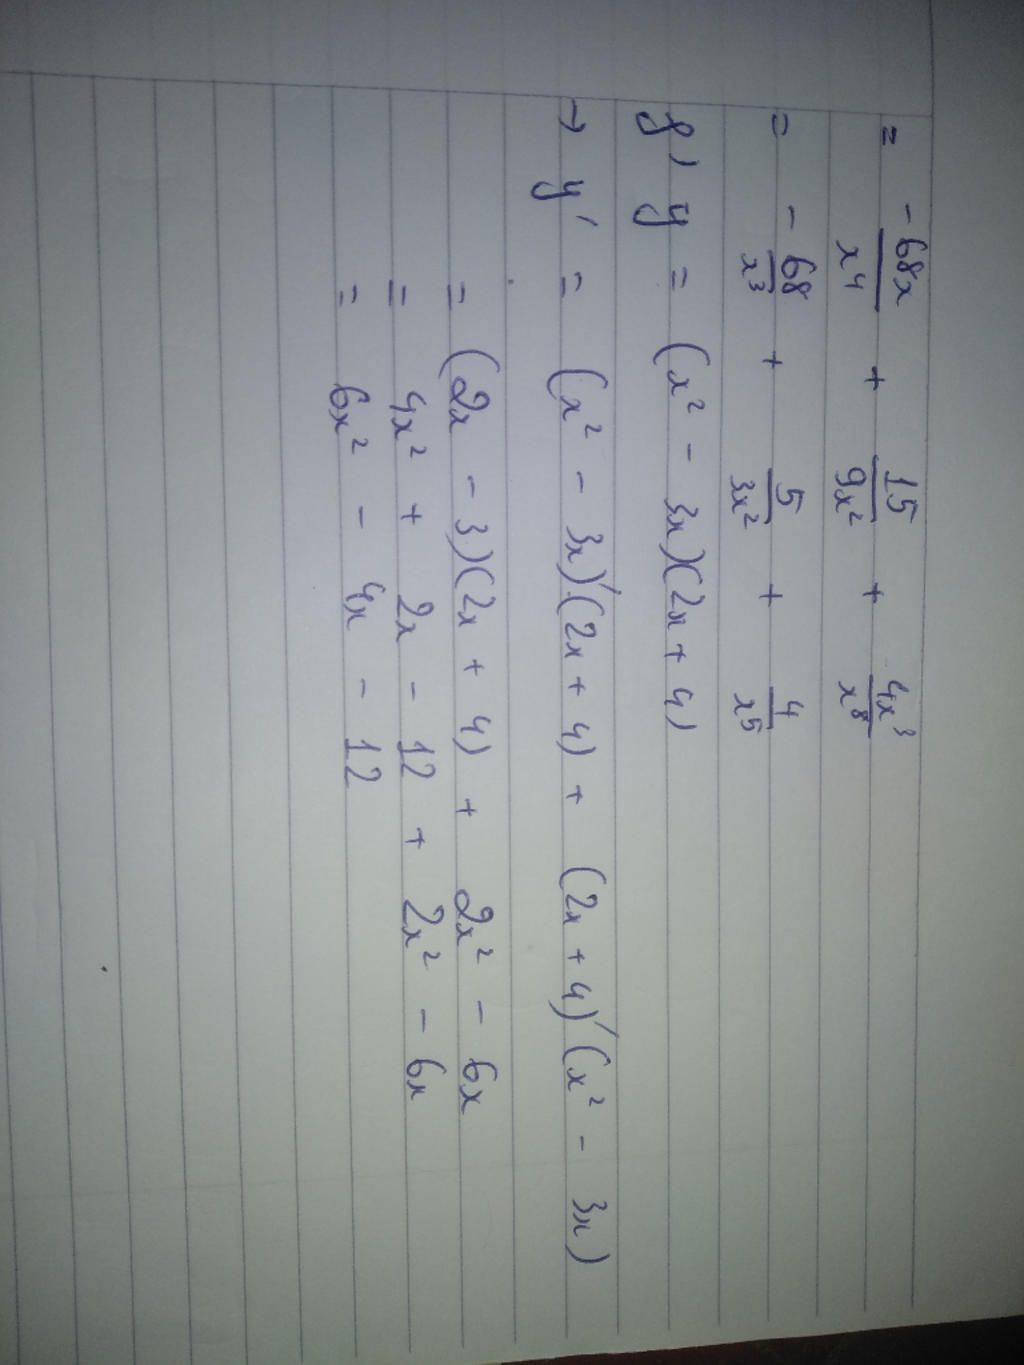 = -68x/x⁴ + 15/9x² + 4x³/x⁸
= -68/x³ + 5/3x² + 4/x⁵
f) y = (x² - 3x)(2x + 4)
→ y' = (x² - 3x)'.(2x + 4) + (2x + 4)'(x² - 3x)
= (2x - 3)(2x + 4) + 2x² - 6x
= 4x² + 2x - 12 + 2x² - 6x
= 6x² - 4x - 12